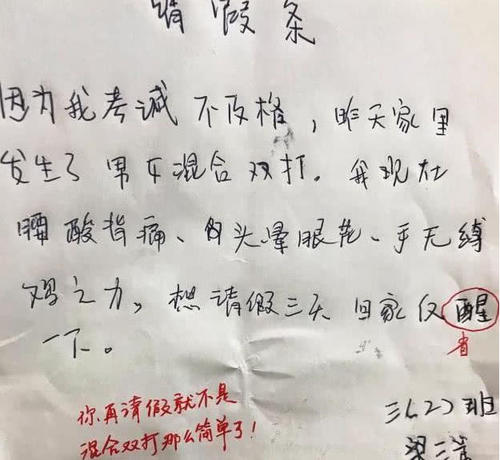 请假条
因为我考诚不及格，昨天家里
发生了男女混合双打。我现在
腰酸背痛、头晕眼花、手无缚
鸡之力。想请假三天回家仅醒
省
一下。
你再请假就不是
混合双打那么简单了！
三(2)班